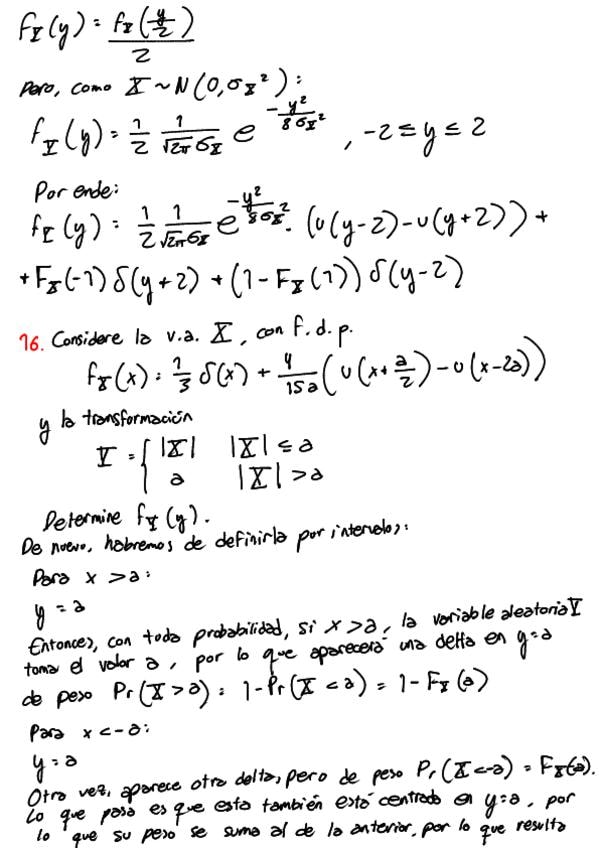 f_Y(y) = f_X(y/2) / 2
Pero, como X ~ N(0, σ_X²):
f_Y(y) = 1/2 1/(√2π σ_X) e^(-y²/8σ_X²) , -2 ≤ y ≤ 2
Por ende:
f_Y(y) = 1/2 1/(√2π σ_X) e^(-y²/8σ_X²) · (u(y-2) - u(y+2)) +
+ F_X(-1) δ(y+2) + (1 - F_X(1)) δ(y-2)
16. Considere la v.a. X, con f.d.p.
f_X(x) = 1/3 δ(x) + 4/15a (u(x + a/2) - u(x-2a))
y la transformación
Y = { |X| |X| ≤ a
a |X| > a
Determine f_Y(y).
De nuevo, habremos de definirla por intervalos:
Para x > a:
y = a
Entonces, con toda probabilidad, si x > a, la variable aleatoria Y
toma el valor a, por lo que aparecerá una delta en y=a
de peso Pr(X > a) = 1 - Pr(X < a) = 1 - F_X(a)
Para x < -a:
y = a
Otra vez, aparece otra delta, pero de peso Pr(X < -a) = F_X(-a).
Lo que pasa es que esta también está centrada en y=a, por
lo que su peso se suma al de la anterior, por lo que resulta